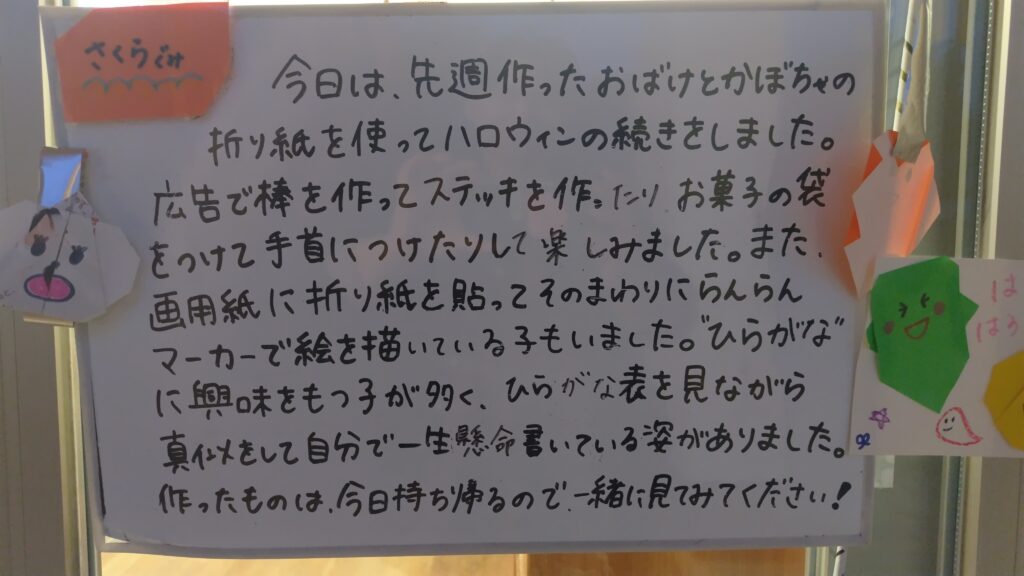 さくらぐみ
今日は、先週作ったおばけとかぼちゃの
折り紙を使ってハロウィンの続きをしました。
広告で棒を作ってステッキを作ったり お菓子の袋
をつけて手首につけたりして楽しみました。また、
画用紙に折り紙を貼ってそのまわりにらんらん
マーカーで絵を描いている子もいました。"ひらがな"
に興味をもつ子が多く、ひらがな表を見ながら
真似をして自分で一生懸命書いている姿がありました。
作ったものは、今日持ち帰るので、一緒に見てみてください!
は